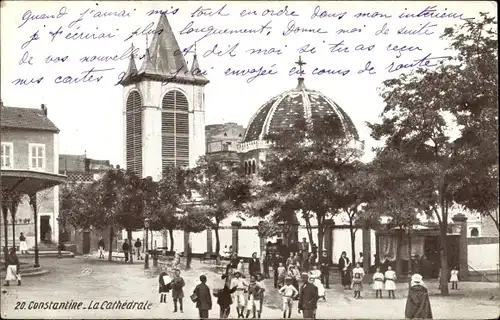 Quand j'aurai mis tout en ordre dans mon intérieur
je t'écrirai plus longuement. Donne moi de suite
de vos nouvelles et dit moi si tu as reçu
mes cartes envoyée en cours de route
20. Constantine_ La Cathédrale